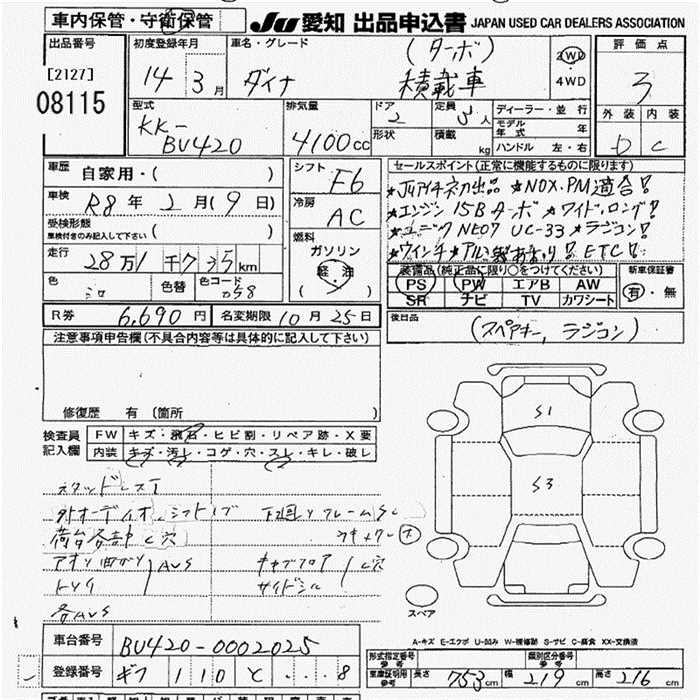 車内保管・守衛保管
JU 愛知 出品申込書 JAPAN USED CAR DEALERS ASSOCIATION
出品番号
[2127]
08115
初度登録年月
14年3月
車名・グレード
ダイナ
(ターボ)
積載車
2WD
4WD
評価点
3
外装 内装
D C
型式
KK-
BU420
排気量
4100cc
ドア
2
形状
定員
3人
積載
kg
ディーラー・並行
モデル年式 年
ハンドル 左・右
車歴
自家用・( )
車検
R8年2月(9日)
受検形態
車検付きのみ記入して下さい ( )
走行
28万1千935km
色
シロ
色替
色コード
058
シフト
F6
冷房
AC
燃料
ガソリン
軽・油
( )
セールスポイント(正常に機能するものに限ります)
★JUアイチ初出品 ★NOX.PM適合!
★エンジン15Bターボ★ワイド,ロング!
★ユニックNEO7 UC-33★ラジコン!
★ウインチ★アルミ
ETC!
装備品(純正品に限り○をつけてください)
PS PW エアB AW
SR ナビ TV カワシート
新車保証書
有・無
後日品
(スペアキー, ラジコン)
R券 6,690円 名変期限 10月25日
注意事項申告欄(不具合内容等は具体的に記入して下さい)
修復歴 有 (箇所 )
検査員
記入欄
FW キズ・飛石・ヒビ割・リペア跡・X要
内装 キズ・汚レ・コゲ・穴・スレ・キレ・破レ
スタッドレスT
外オーディオ,シフトノブ
荷台各部 C穴
アオリ曲がり AUS
トリイ
各AUS
下廻りフレームSC
キャブフロア
サイドシル
C穴
S1
S3
スペア
A-キズ E-エクボ U-凹み W-補修跡 S-サビ C-腐食 XX-交換済
車台番号 BU420-0002025
登録番号 ギフ 110 て ・・・8
形式指定番号
参考
類別区分番号
参考
車庫証明用
参考
長さ 753cm 幅 219cm 高さ 216cm